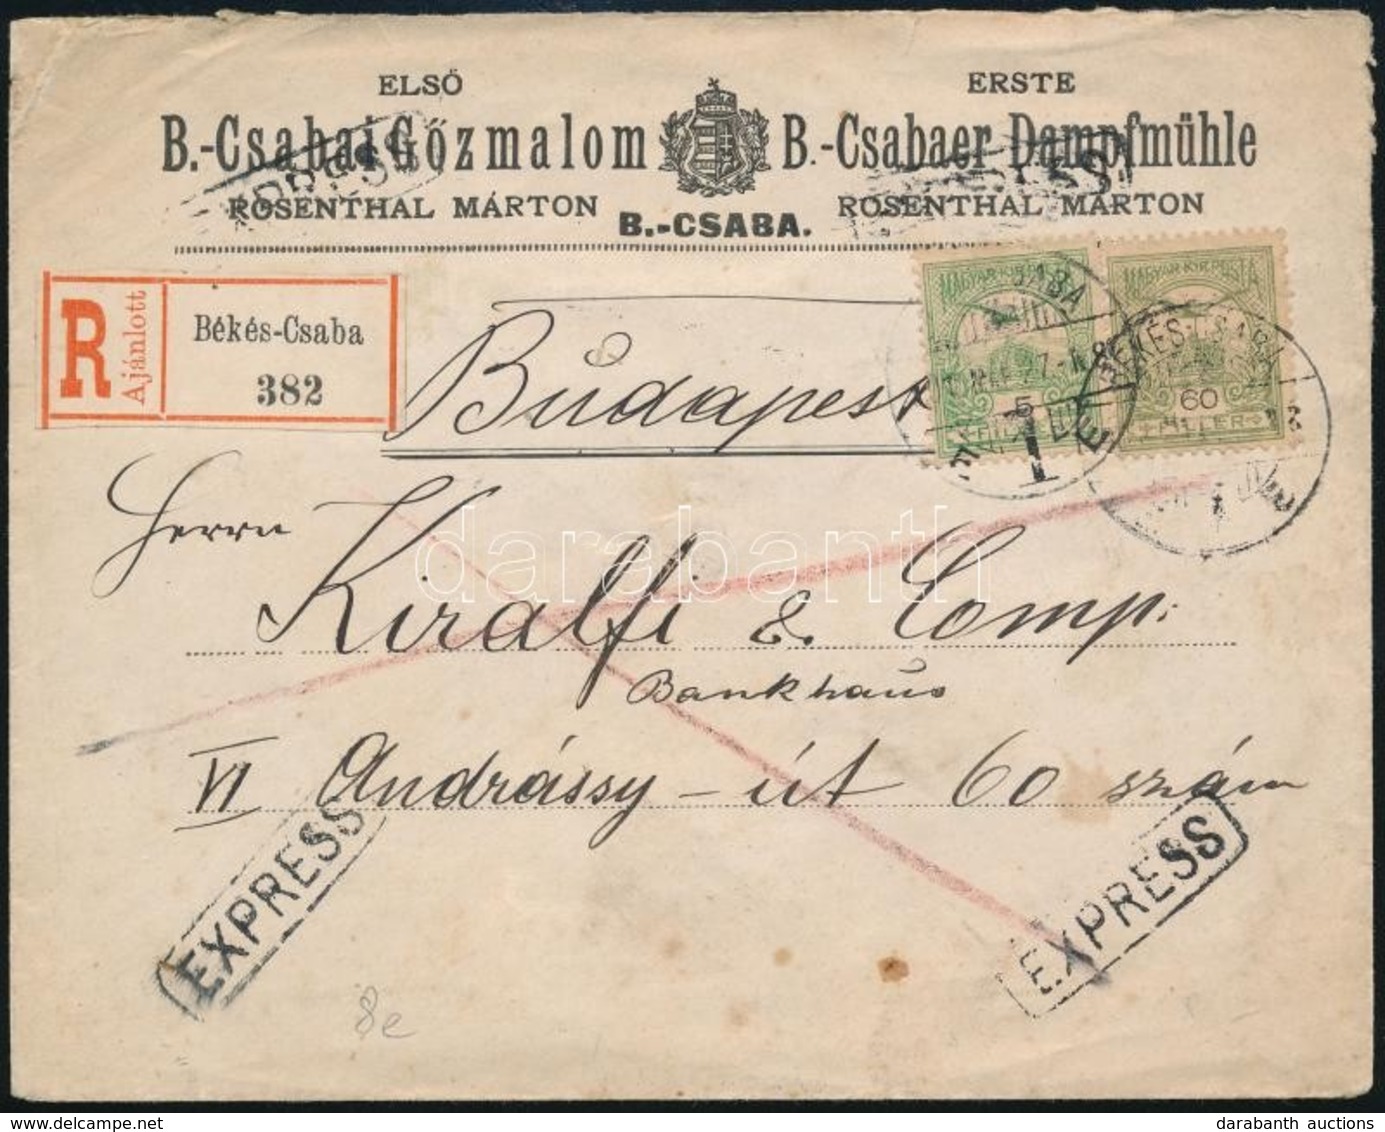 ELSŐ
B.-Csabai Gőzmalom
ROSENTHAL MÁRTON
B.-CSABA.
ERSTE
B.-Csabaer Dampfmühle
ROSENTHAL MÁRTON
R
Ajánlott
Békés-Csaba
382
MAGYAR KIR. POSTA
5
MAGYAR KIR. POSTA
60
FILLER
BÉKÉS-CSABA
Budapest
Herrn
Kiralfi & Comp.
Bankhaus
VI Andrássy-út 60 szám
EXPRESS
EXPRESS
8e
darabanth
darabanth auctions